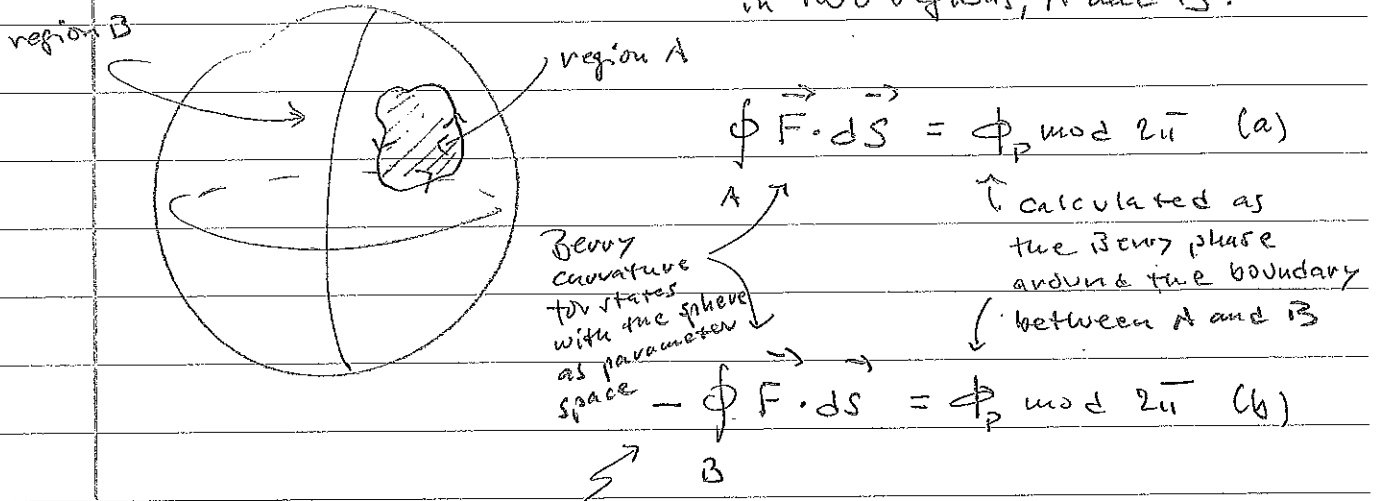 in two regions, A and B:
region B
region A
∮ F⃗·dS⃗ = ϕ_p mod 2π (a)
A
↑ calculated as
the Berry phase
around the boundary
between A and B
Berry
curvature
for states
with the sphere
as parameter
space
- ∮ F⃗·dS⃗ = ϕ_p mod 2π (b)
B